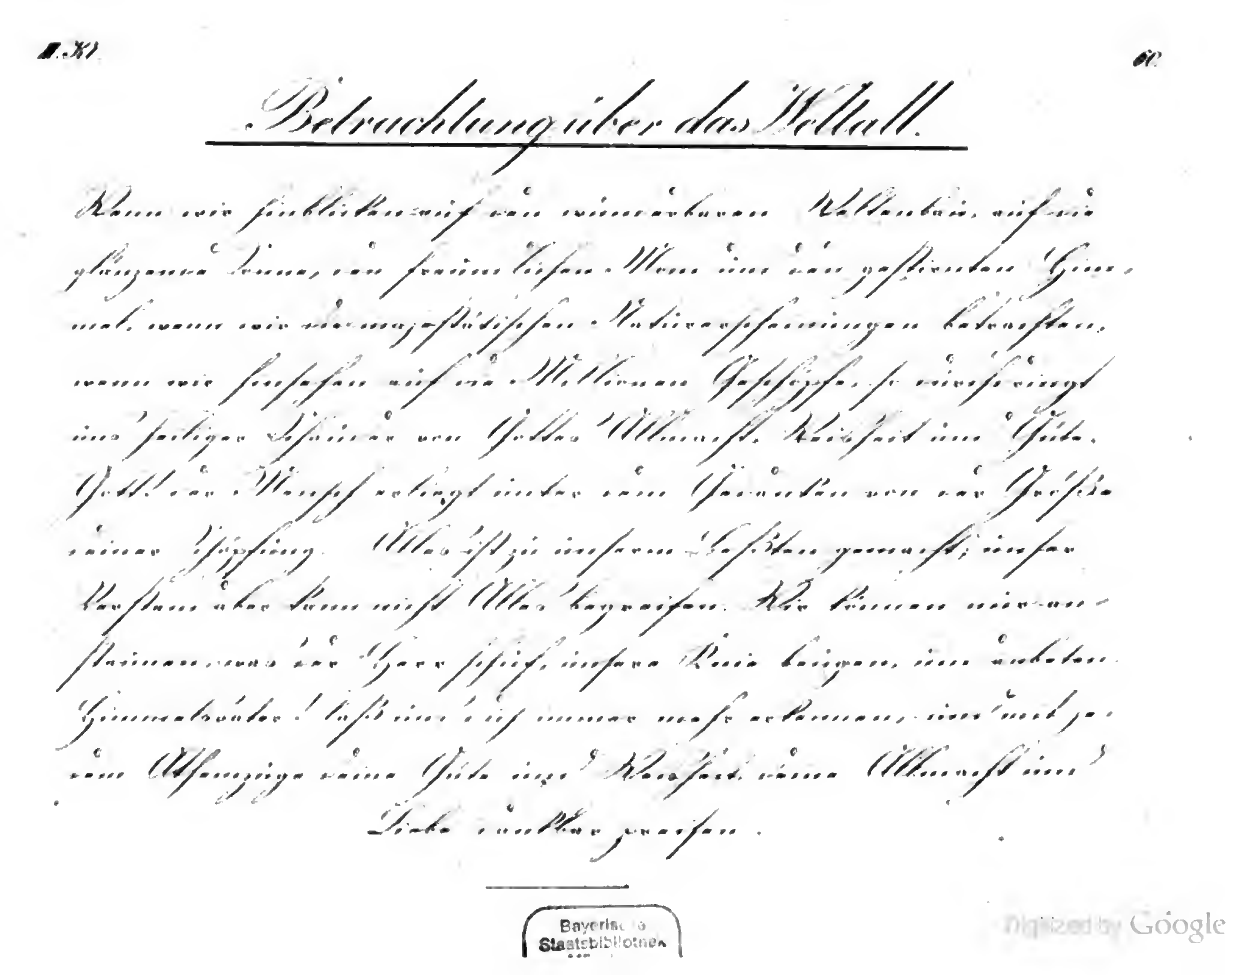 II. Kl.
60.
Betrachtung über das Weltall.
Wenn wir hinblicken auf den wunderbaren Weltenbau, auf die
glänzende Sonne, den freundlichen Mond und den gestirnten Him-
mel, wenn wir die majestätischen Naturerscheinungen betrachten,
wenn wir hinsehen auf die Millionen Geschöpfe, so durchdringt
uns heiliger Schauder von Gottes Allmacht, Weisheit und Güte.
Gott! der Mensch erliegt unter dem Gedanken von der Größe
deiner Schöpfung. Alles ist zu unserm Beßten gemacht; unser
Verstand aber kann nicht Alles begreifen. Wir können nur an-
staunen, was der Herr schuf, unsere Knie beugen, und anbeten.
Himmelsvater! laß uns dich immer mehr erkennen, und mit je-
dem Athemzuge deine Güte und Weisheit, deine Allmacht und
Liebe dankbar preisen.
Bayerische
Staatsbibliothek
Digitized by Google